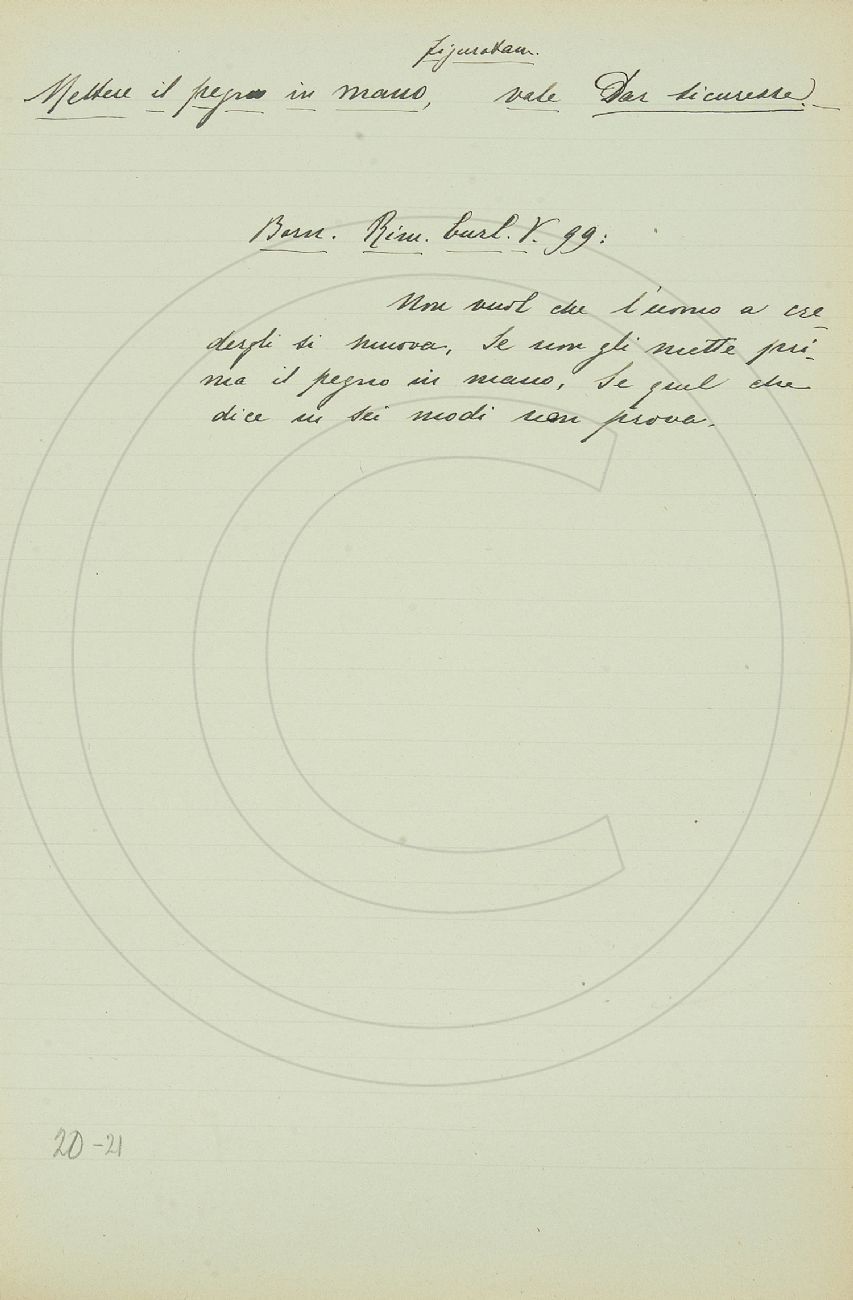 figuratam.
Mettere il pegno in mano, vale Dar sicurezza.
Born. Rim. burl. V. 99:
Non vuol che l'uomo a cre-
dergli si muova, Se non gli mette pri-
ma il pegno in mano, Se quel che
dice in sei modi non prova.
20-21